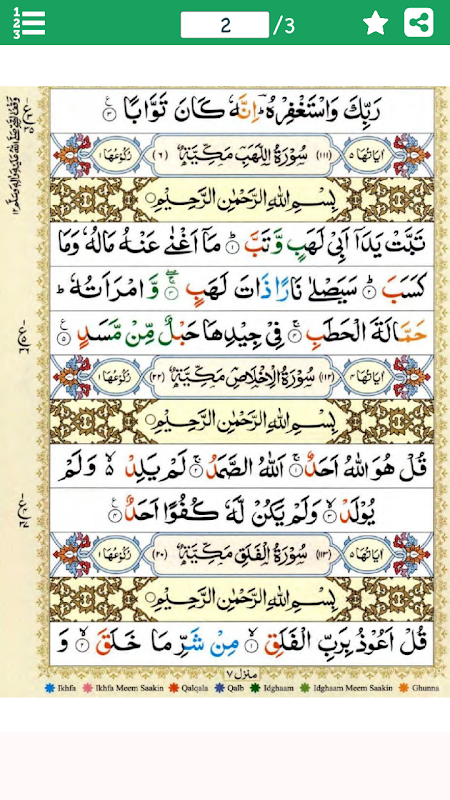 1
2
3
2 /3
رَبِّكَ وَاسْتَغْفِرْهُ ؕ اِنَّهٗ كَانَ تَوَّابًا ۝۳
اٰيَاتُهَا ۵ (۱۱۱) سُوْرَةُ اللَّهَبِ مَكِّيَّةٌ (۶) رُكُوْعُهَا ۱
بِسْمِ اللّٰهِ الرَّحْمٰنِ الرَّحِيْمِ
تَبَّتْ يَدَاۤ اَبِيْ لَهَبٍ وَّتَبَّ ۝۱ مَاۤ اَغْنٰى عَنْهُ مَالُهٗ وَمَا
كَسَبَ ۝۲ سَيَصْلٰى نَارًا ذَاتَ لَهَبٍ ۝۳ وَّامْرَاَتُهٗ ؕ
حَمَّالَةَ الْحَطَبِ ۝۴ فِيْ جِيْدِهَا حَبْلٌ مِّنْ مَّسَدٍ ۝۵
اٰيَاتُهَا ۴ (۱۱۲) سُوْرَةُ الْاِخْلَاصِ مَكِّيَّةٌ (۲۲) رُكُوْعُهَا ۱
بِسْمِ اللّٰهِ الرَّحْمٰنِ الرَّحِيْمِ
قُلْ هُوَ اللّٰهُ اَحَدٌ ۝۱ اَللّٰهُ الصَّمَدُ ۝۲ لَمْ يَلِدْ ۙ وَلَمْ
يُوْلَدْ ۝۳ وَلَمْ يَكُنْ لَّهٗ كُفُوًا اَحَدٌ ۝۴
اٰيَاتُهَا ۵ (۱۱۳) سُوْرَةُ الْفَلَقِ مَكِّيَّةٌ (۲۰) رُكُوْعُهَا ۱
بِسْمِ اللّٰهِ الرَّحْمٰنِ الرَّحِيْمِ
قُلْ اَعُوْذُ بِرَبِّ الْفَلَقِ ۝۱ مِنْ شَرِّ مَا خَلَقَ ۝۲ وَ
منزل ۷
Ikhfa Ikhfa Meem Saakin Qalqala Qalb Idghaam Idghaam Meem Saakin Ghunna